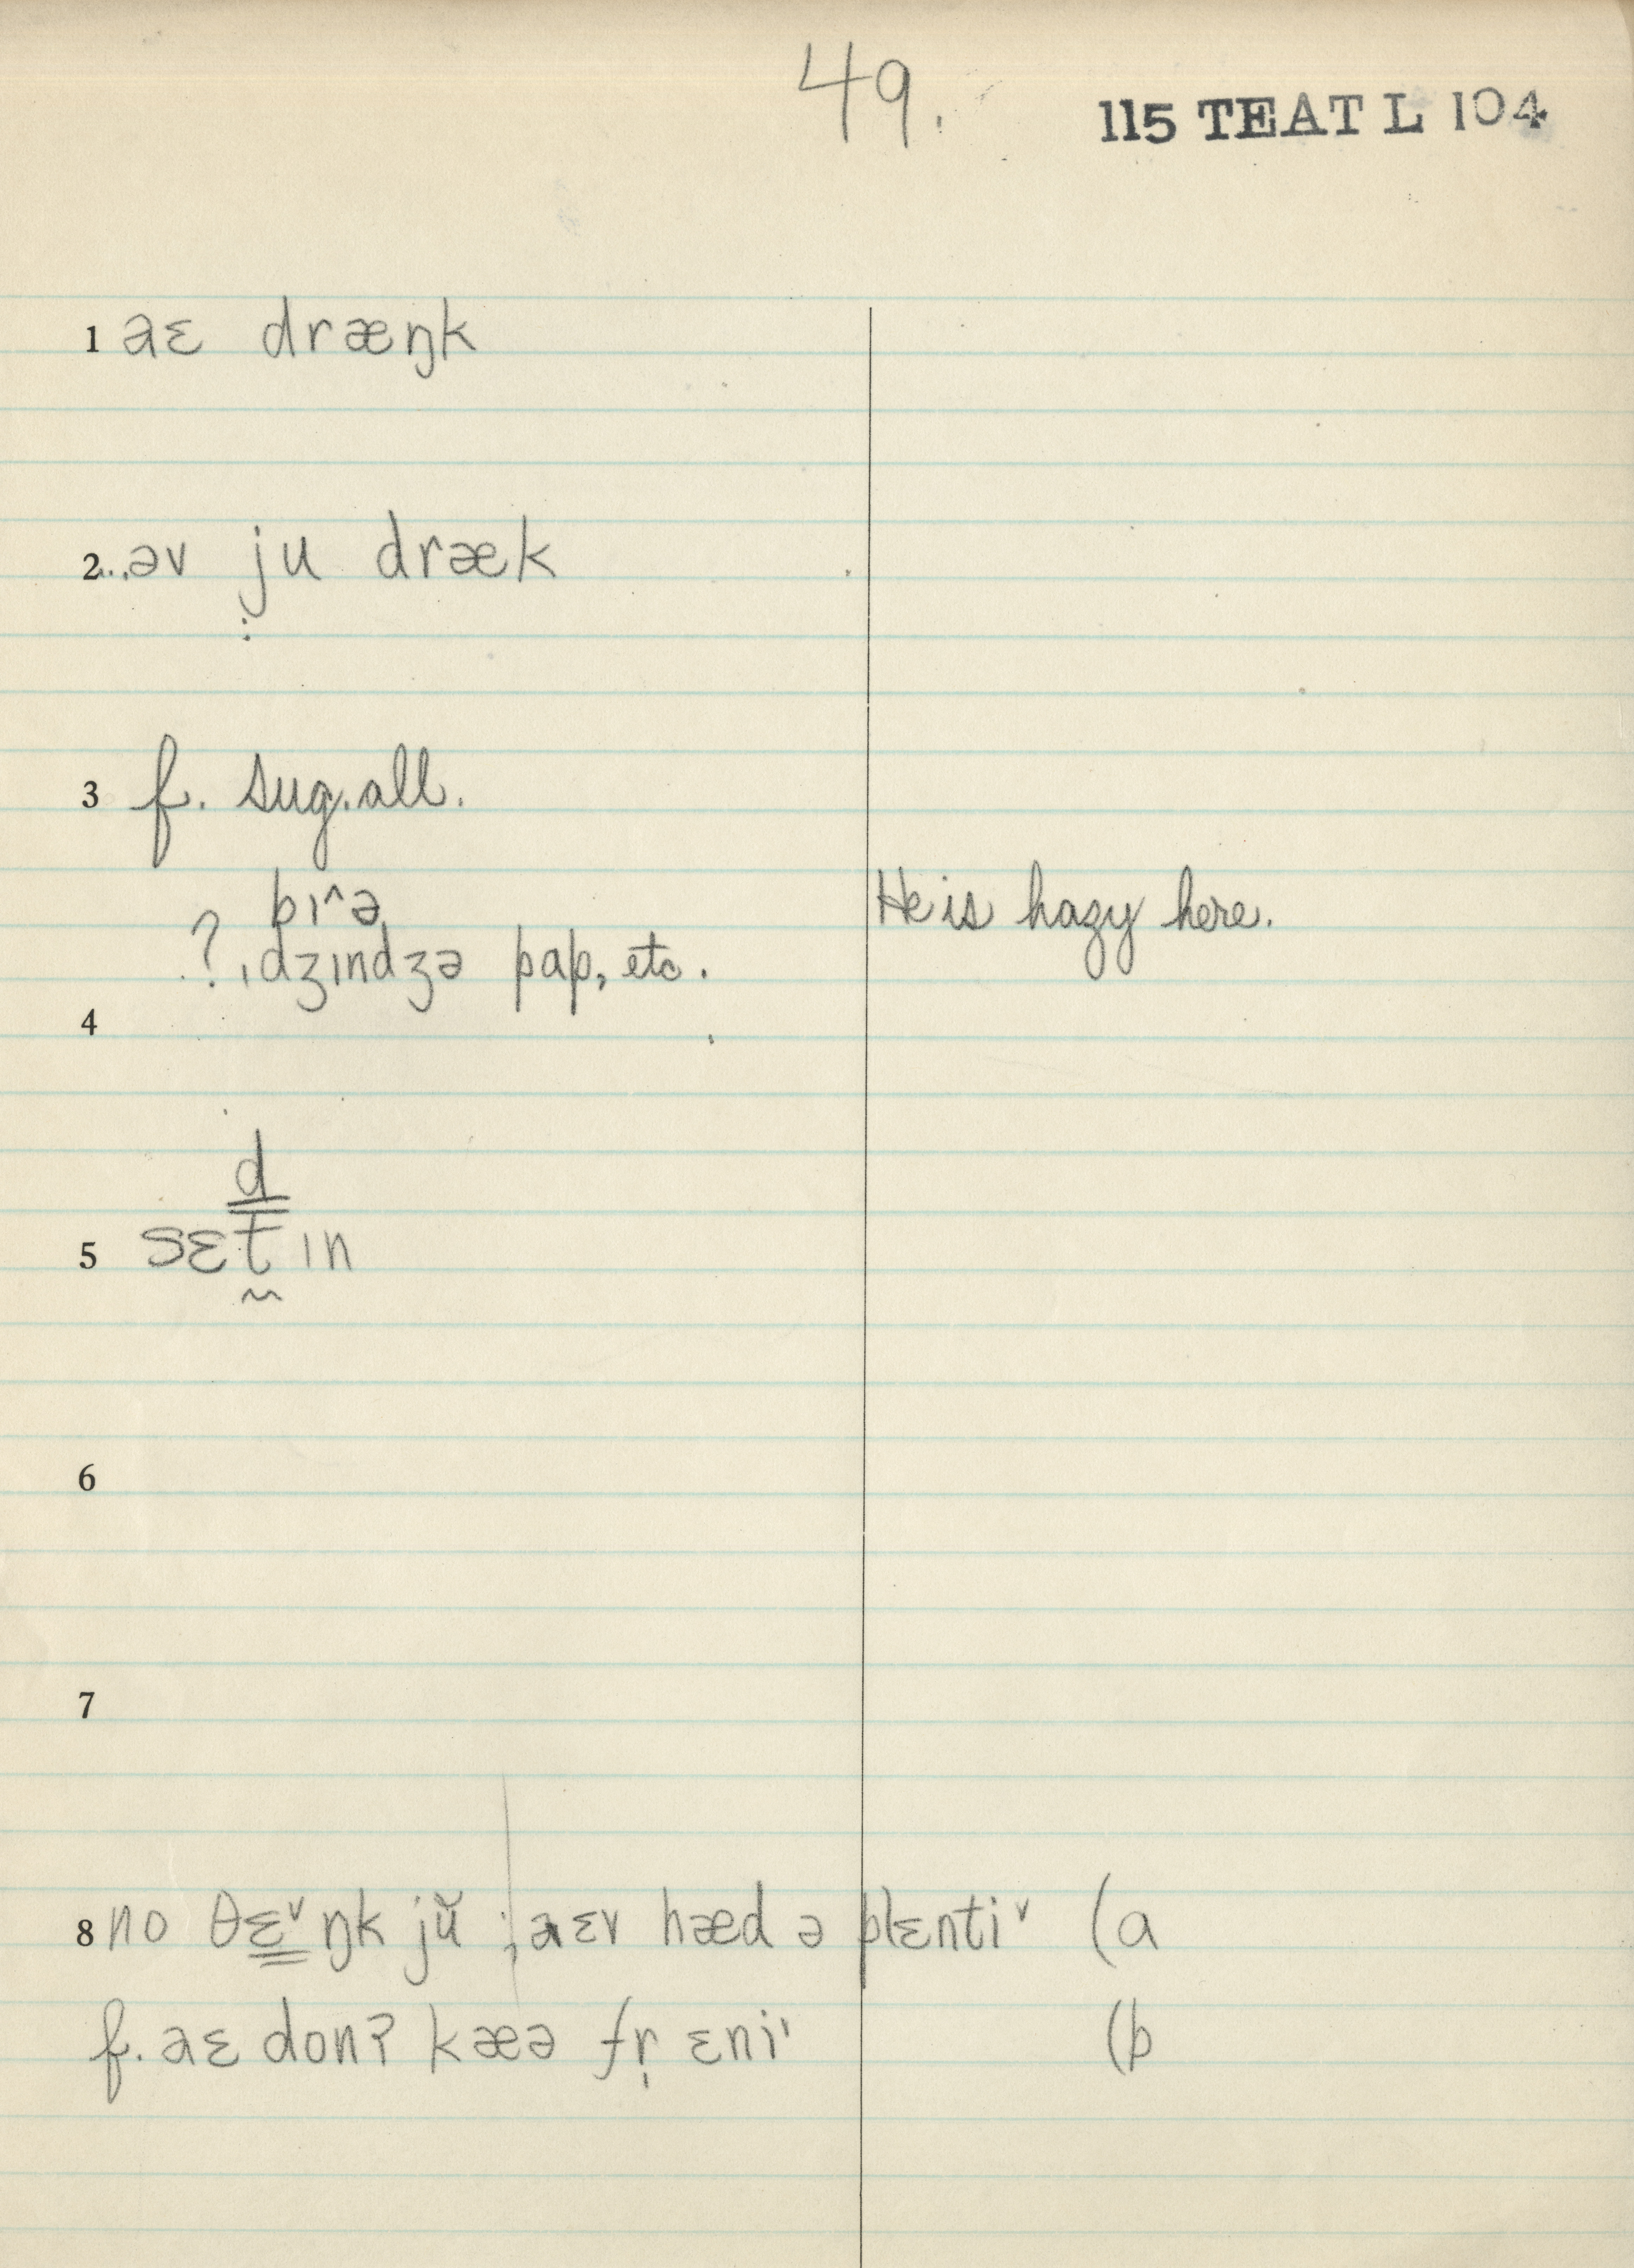 49.
115 TEAT L 104
1 aɛ dræŋk
2...əv ju dræk
3 f. sug. all.
bɪ^ə He is hazy here.
? ˌdʒɪndʒə pap, etc.
4
d
5 sɛt̬ ɪn
6
7
8 no θɛˇŋk jŭ ; aɛv hæd ə plɛntiˇ (a
f. aɛ donʔ kæə fr̩ ɛni' (b